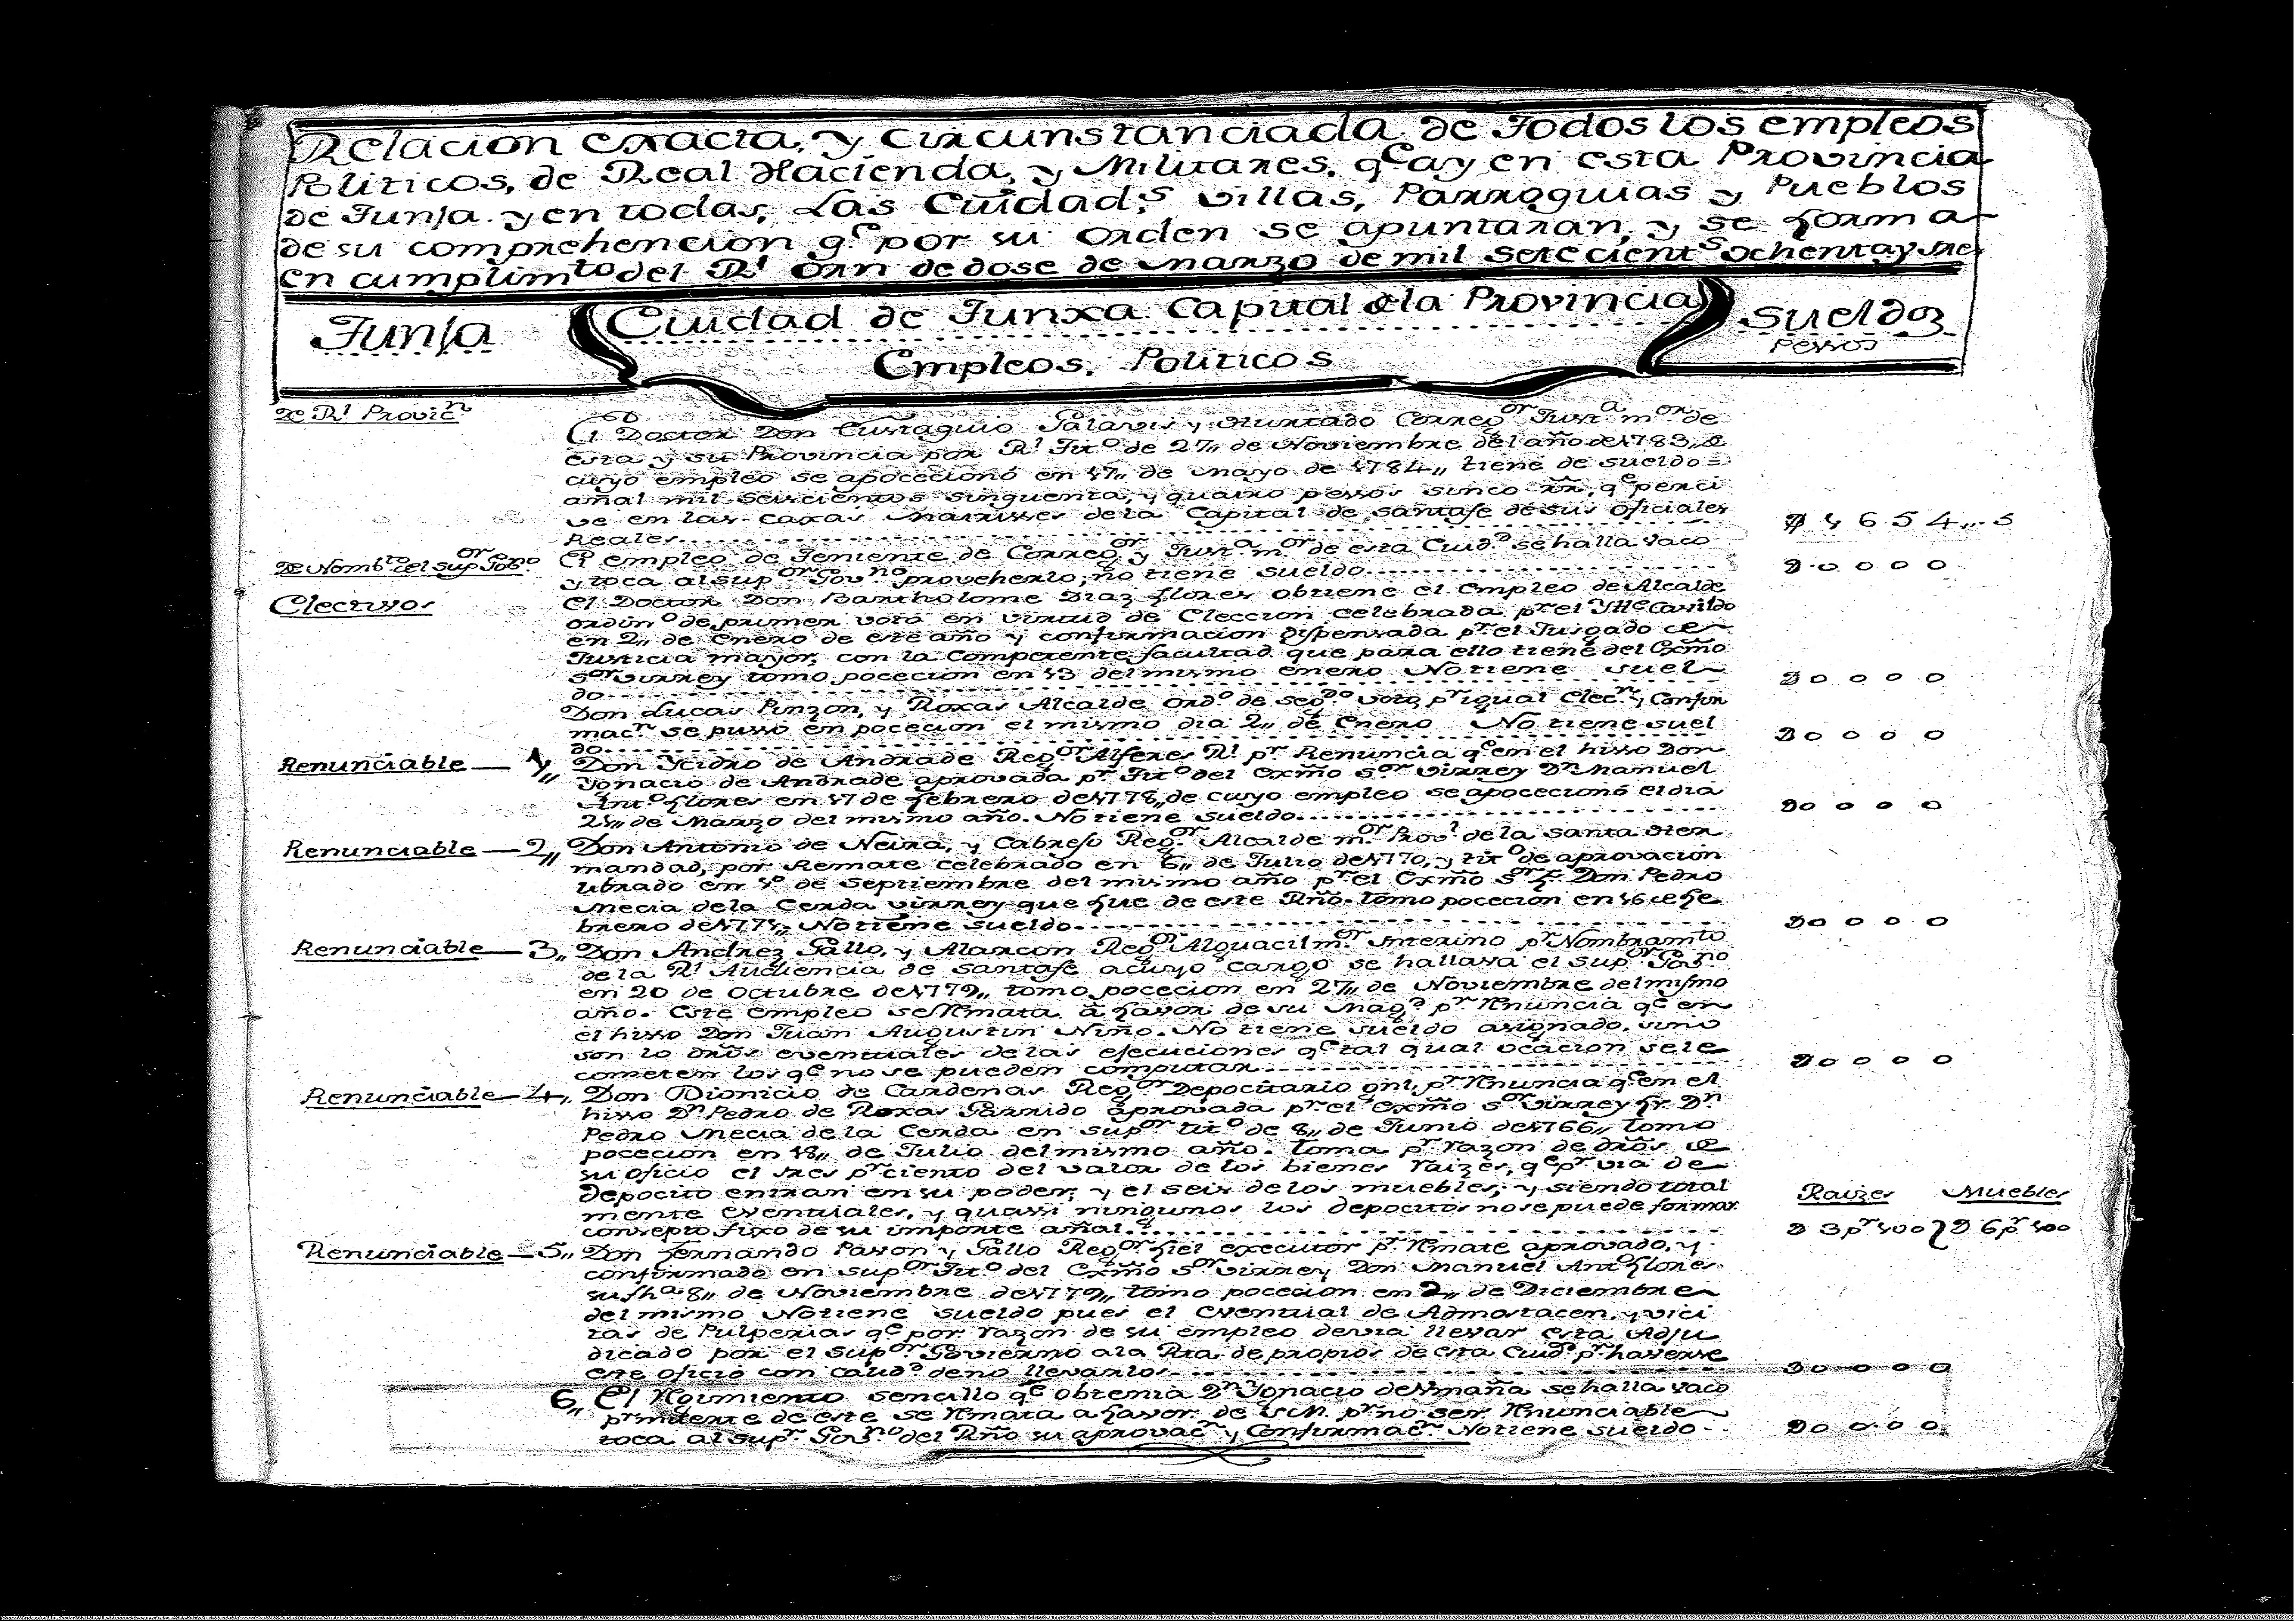 Relacion exacta, y circunstanciada de Todos los empleos
Politicos, de Real Hacienda, y Militares, qe ay en esta Provincia
de Tunja y en todas, Las Cuidad.s Villas, Parroquias y Pueblos
de su comprehencion qe por su orden se apuntaran, y se forma
en cumplimto del Rl Orn de dose de Marzo de mil setecients ochenta y tres
Tunja
Ciudad de Tunxa Capital de la Provincia
Sueldoz
Empleos, Politicos
Pessos
De Rl Provicn
El Doctor Don Eustaquio Galavis y Hurtado Corregor Justa mor de
esta y su Provincia por Rl Tito de 27,, de Noviembre del año de 1783,, de
cuyo empleo se apocecionó en 17,, de Mayo de 1784,, tiene de sueldo =
añal mil seiscientos sinquenta, y quatro pessos sinco rrs, qe perci
ve en las caxas Matrisses de la Capital de santafe de sus oficiales
Reales
1654,, 5
De Nombto del supor Gobno
El empleo de Teniente de Corregor y Justa mor de esta Cuidd se halla vaco
y toca al supor Govno proveherlo, no tiene sueldo
0 0 0 0
Electivos
El Doctor Don Bartholome Diaz flores obtiene el Empleo de Alcalde
ordino de primer voto en virtud de Eleccion celebrada pr el Ylle Cavildo
en 2,, de Enero de este año y confirmacion dispensada pr el Jusgado de
Justicia mayor, con la Competente facultad que para ello tiene del Exmo
Sor Virrey tomo pocecion en 13 del mismo enero No tiene suel
do
0 0 0 0
Don Lucas Pinzon, y Roxas Alcalde Ordo de segdo voto pr igual Elecn y Confir
macn se pusso en pocecion el mismo dia 2,, de Enero No tiene suel
do
0 0 0 0
Renunciable — 1,,
Don Ycidro de Andrade Regor Alferes Rl pr Renuncia qe en el hisso Don
Ygnacio de Andrade aprovada pr Tito del Exmo Sor Virrey Dn Manuel
Anto flores en 17 de febrero de 1778,, de cuyo empleo se apocecionó el dia
21,, de Marzo del mismo año. No tiene sueldo
0 0 0 0
Renunciable — 2,,
Don Antonio de Neira, y Cabrejo Regor Alcalde mor Provl de la santa Her
mandad, por Remate celebrado en 6,, de Julio de 1770, y tito de aprovacion
librado en 1o de Septiembre del mismo año pr el Exmo Sor Fr Don Pedro
Mecia de la Cerda Virrey que fue de este Rño. tomo pocecion en 16 de fe
brero de 1771,, No tiene sueldo
0 0 0 0
Renunciable — 3,,
Don Andrez Gallo, y Alarcon Regor Alguacil mor Interino pr Nombramto
de la Rl Audiencia de santafe a cuyo cargo se hallava el supor Govno
en 20 de Octubre de 1779,, tomo pocecion en 27,, de Noviembre del mismo
año. Este empleo se Rmata à favor de su Magd pr Rnuncia qe en
el hisso Don Juan Augustin Niño. No tiene sueldo asignado, sino
son lo dros eventuales de las ejecuciones qe tal qual ocacion se le
cometen los qe no se pueden computar
0 0 0 0
Renunciable — 4,,
Don Dionicio de Cardenas Regor Depocitario gnl, pr Rnuncia qe en el
hisso Dn Pedro de Roxas Garrido aprovada pr el Exmo Sor Virrey fr Dn
Pedro Mecia de la Cerda en supor tito de 8,, de Junio de 1766,, tomo
pocecion en 18,, de Julio del mismo año. toma pr razon de dros de
su oficio el tres pr ciento del valor de los bienes raizes, qe pr via de
depocito entran en su poder, y el seis de los muebles, y siendo total
mente eventuales, y quassi ningunos los depocitos no se puede formar
consepto fixo de su importe añal
Raizes Muebles
3 pr 100 } 6 pr 100
Renunciable — 5,,
Don fernando Passon y Gallo Regor fiel executor pr Rmate aprovado, y
confirmado en supor Tito del Exmo Sor Virrey Don Manuel Anto flores
su fha 8,, de Noviembre de 1779,, tomo pocecion en 2,, de Diciembre
del mismo No tiene sueldo pues el eventual de Admotacen, y vici
tas de Pulperias qe por razon de su empleo devia llevar esta Adju
dicado por el supor Govierno a la Rta de propios de esta Cuidd pr haverse
este oficio con calidd de no llevarlos
0 0 0 0
6,, El Rgimiento sencillo qe obtenia Dn Ygnacio de Umaña se halla vaco
de este se Rmata a favor de S.M. pr no ser Rnunciable
toca al supr Govno del Rño su aprovacn y Confirmacn No tiene sueldo
0 0 0 0